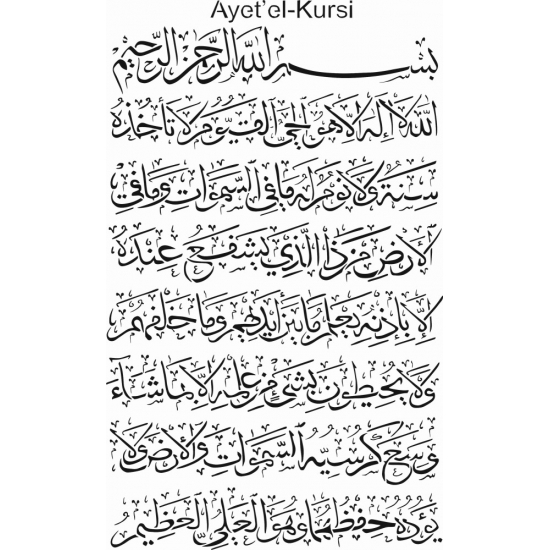 Ayet'el-Kursi
بسم الله الرحمن الرحيم
الله لا إله إلا هو الحي القيوم لا تأخذه
سنة ولا نوم له ما في السموات وما في
الأرض من ذا الذي يشفع عنده
إلا بإذنه يعلم ما بين أيديهم وما خلفهم
ولا يحيطون بشيء من علمه إلا بما شاء
وسع كرسيه السموات والأرض ولا
يؤده حفظهما وهو العلي العظيم